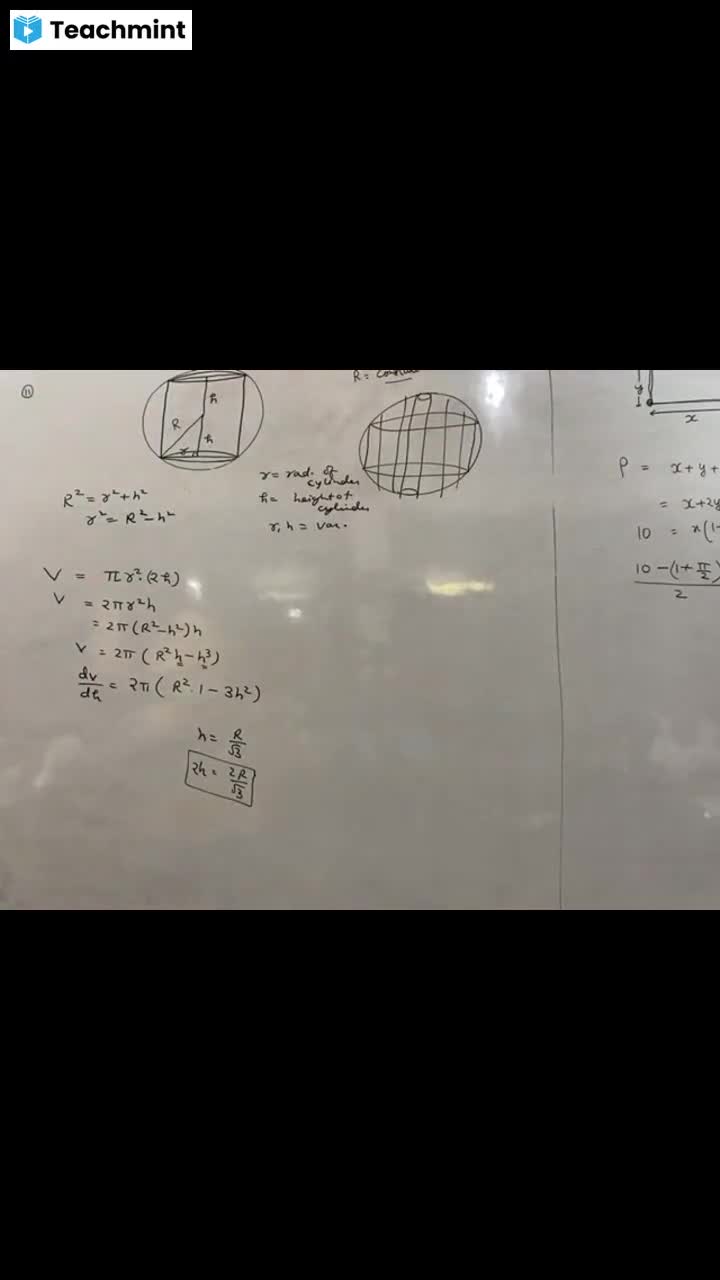 Teachmint
11
R = constant
h
R
h
r
r = rad. of
cylinder
h = height of
cylinder
r, h = var.
R² = r² + h²
r² = R² - h²
V = πr²·(2h)
V = 2πr²h
= 2π(R²-h²)h
V = 2π(R²h - h³)
dv/dh = 2π(R².1 - 3h²)
h = R/√3
2h = 2R/√3
y
x
P = x + y +
= x + 2y
10 = x(1
10 - (1 + π/2)
2